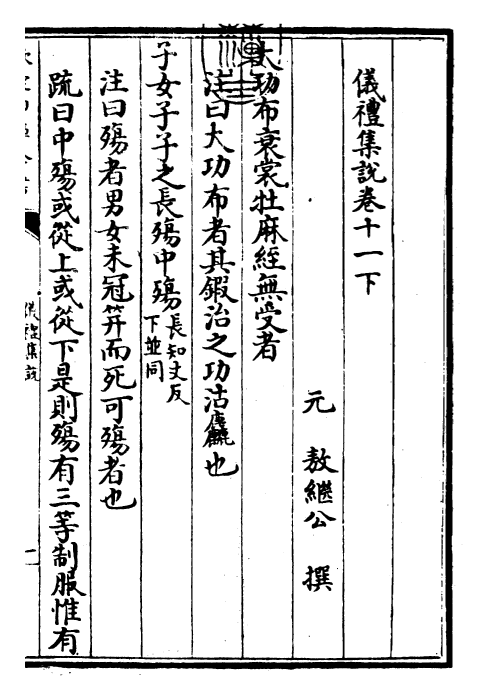 儀禮集說卷十一下
元 敖繼公 撰
大功布衰裳牡麻絰無受者
注曰大功布者其鍛治之功沽麤也
子女子子之長殤中殤長知丈反下並同
注曰殤者男女未冠笄而死可殤者也
疏曰中殤或從上或從下是則殤有三等制服惟有
儀禮集說
一